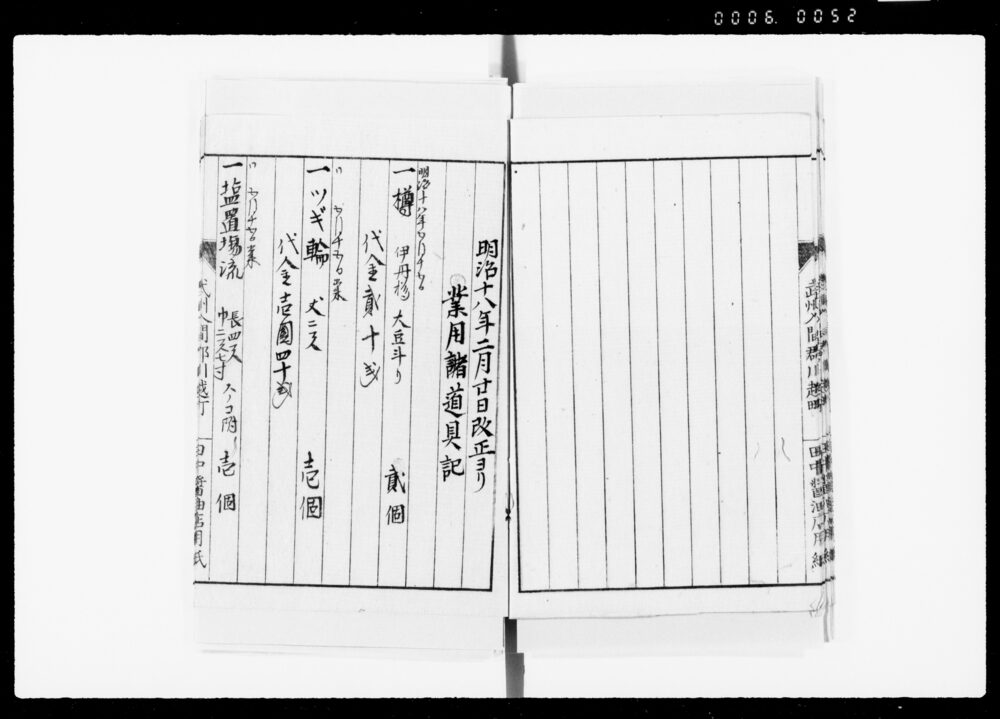 0006. 0052
武州入間郡川越町
田中醤油店用紙
明治十八年二月廿日改正ヨリ
業用諸道具記
明治十八年
一樽 伊丹樽 大豆斗リ 貳個
代金貳十銭
一ツギ輪 丈二尺 壱個
代金壱圓四十銭
一塩置場流 長四尺 巾二尺七寸 スノコ附 壱個
武州入間郡川越町
田中醤油店用紙